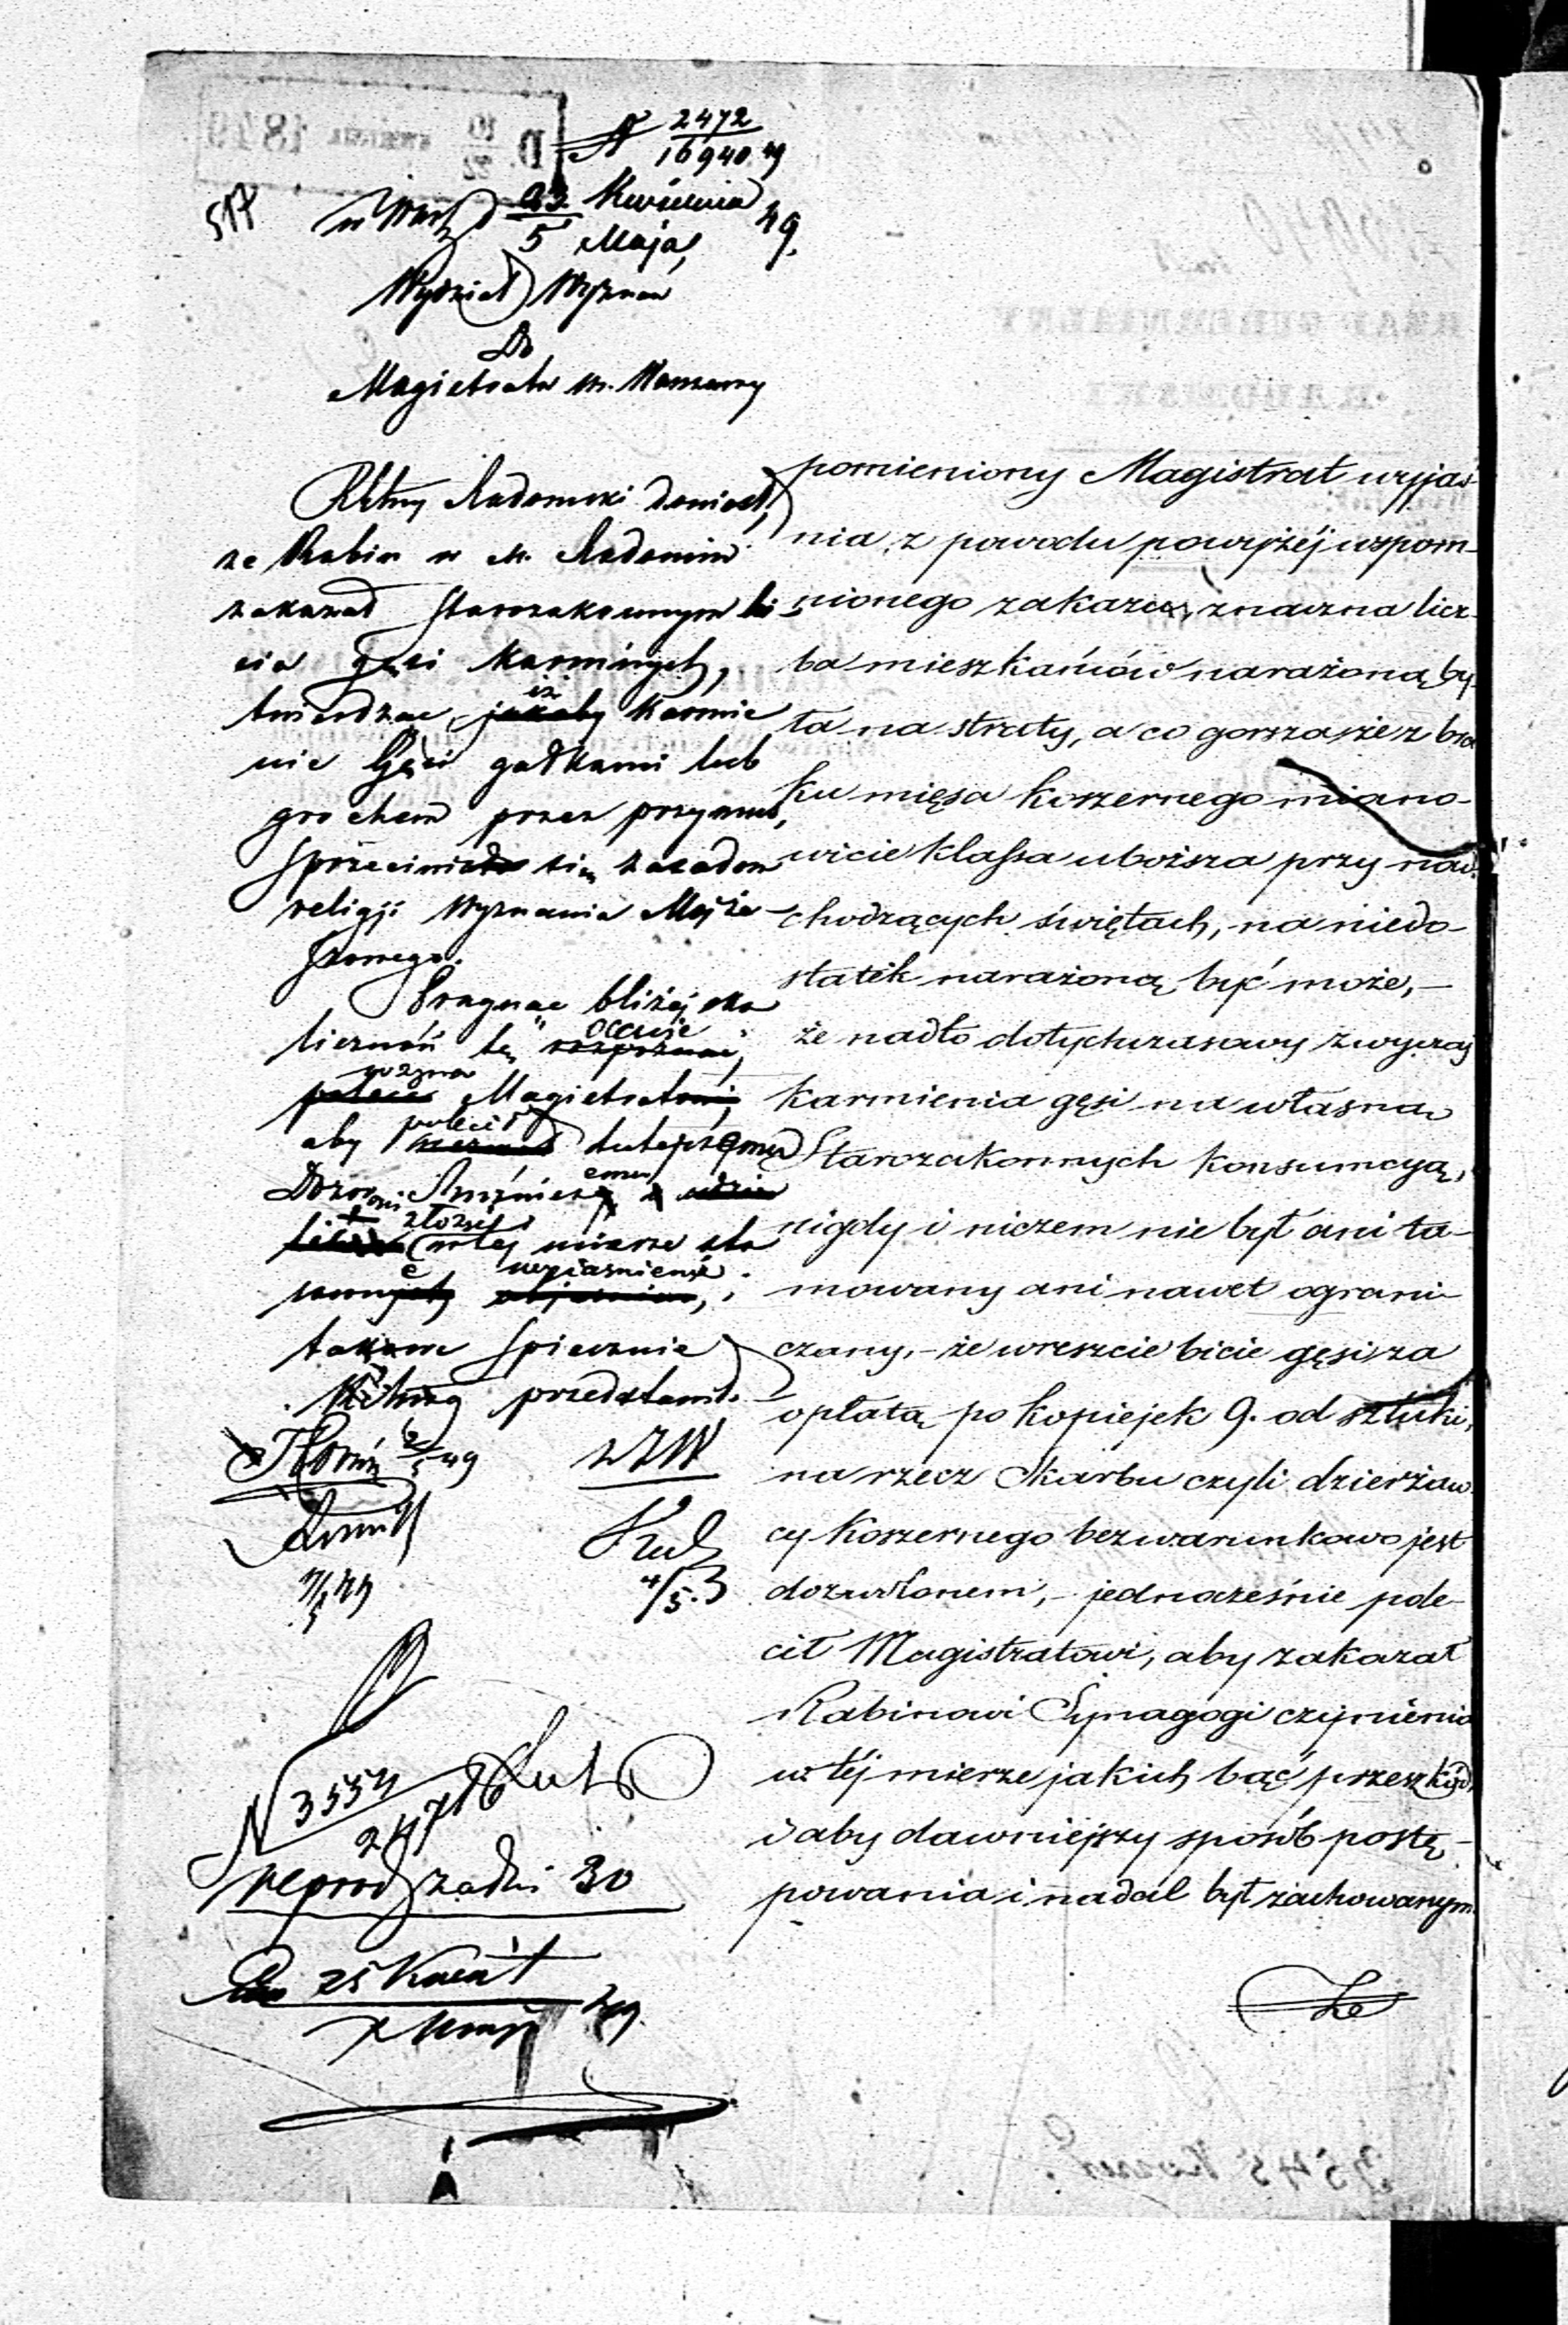 N 2472
16940.49
517
w Warsz d 23 Kwietnia 49.
5 Maja,
Wydział Wyznań
Do
Magistratu m. Warszawy
Rktwy Radomski doniósł,
że Rabin w m. Radomiu
zakazał Starozakonnym bi
cia gęsi karmnych,
twierdząc, jakoby iż karmie
nie Gęsi gałkami lub
grochem przez przymus,
sprzeciwia się zasadom
religji Wyznania Mojże-
szowego.
Pragnąc bliżej oko
liczność tę rozpoznać, ocenić
poleca wzywa Magistrat
aby polecił tutejszemu
Dozorowi Bużnicz emu
złożyć w tej mierze sto
sowne wyjaśnienie i
takowe śpiesznie
przedstawił.
49
4/5.
N 3554
reprod zadni 30
25 Kwiet
7 Maja 49
pomieniony Magistrat wyjaś
nia, z powodu powyżéj wspom-
nionego zakazu, znaczna licz-
ba mieszkańców narażoną by-
ła na straty, a co gorsza że z bra
ku mięsa koszernego miano-
wicie klassa uboższa przy nad-
chodzących świętach, na niedo-
statek narażoną być może, -
że nadto dotychczasowy zwyczaj
karmienia gęsi na własną
Starozakonnych konsumcyą,
nigdy i niczem nie był ani ta-
mowany ani nawet ograni-
czany, - że wreszcie bicie gęsi za
opłatą po kopiejek 9. od sztuki,
na rzecz Skarbu czyli dzierżaw
cy Koszernego bezwarunkowo jest
dozwolonem, - jednocześnie pole-
cił Magistratowi, aby zakazał
Rabinowi Synagogi czynienia
w téj mierze jakich bąć przeszkód,
i aby dawniejszy sposób postę-
powania i nadal był zachowanym.